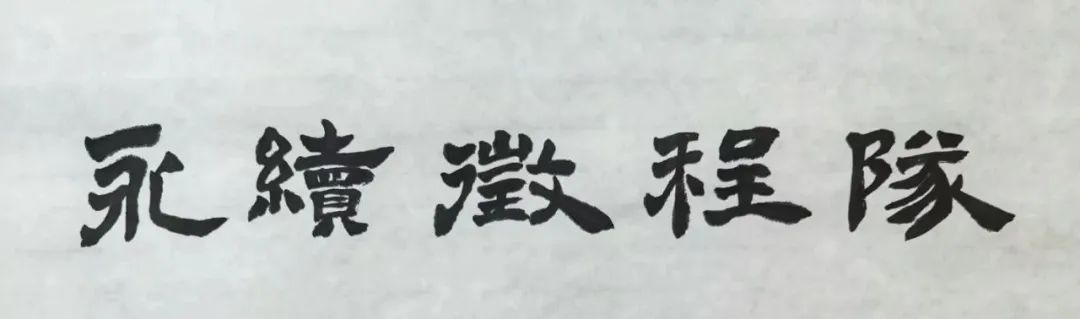 永續徵程隊